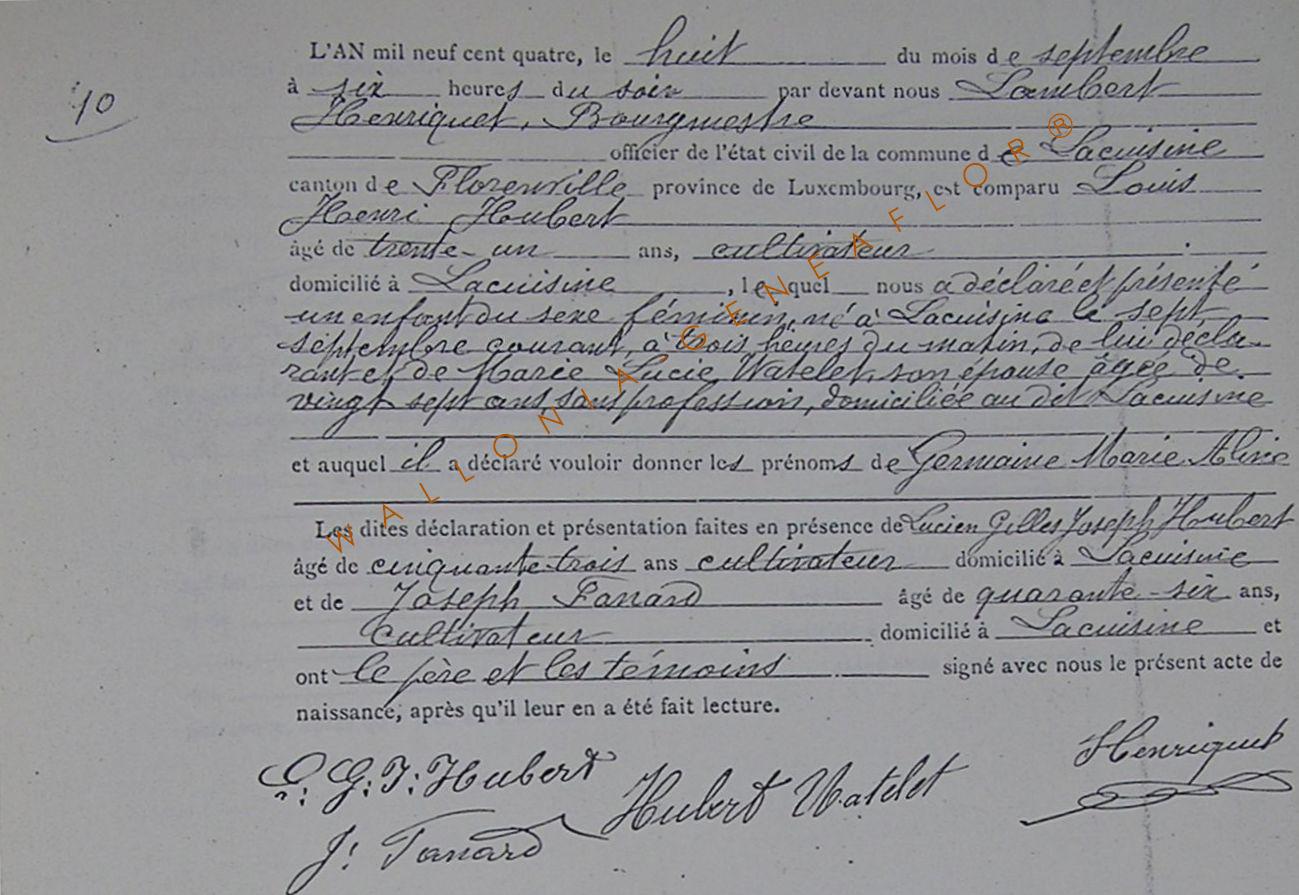 10
L'AN mil neuf cent quatre, le huit du mois de septembre
à six heures du soir par devant nous Lambert
Henriquet, Bourgmestre
officier de l'état civil de la commune de Lacuisine
canton de Florenville province de Luxembourg, est comparu Louis
Henri Hubert
âgé de trente-un ans, cultivateur
domicilié à Lacuisine, lequel nous a déclaré et présenté
un enfant du sexe féminin, né à Lacuisine le sept
septembre courant, à trois heures du matin, de lui décla-
rant et de Marie Lucie Watelet, son épouse âgée de
vingt sept ans, sans profession, domiciliée au dit Lacuisine
et auquel il a déclaré vouloir donner les prénoms de Germaine Marie Aline
Les dites déclaration et présentation faites en présence de Lucien Gilles Joseph Hubert
âgé de cinquante-trois ans cultivateur domicilié à Lacuisine
et de Joseph Fanard âgé de quarante-six ans,
cultivateur domicilié à Lacuisine et
ont le père et les témoins signé avec nous le présent acte de
naissance, après qu'il leur en a été fait lecture.
L. G. J. Hubert
Hubert Watelet
Henriquet
J. Fanard
WALLONIA GENEAFLOR®